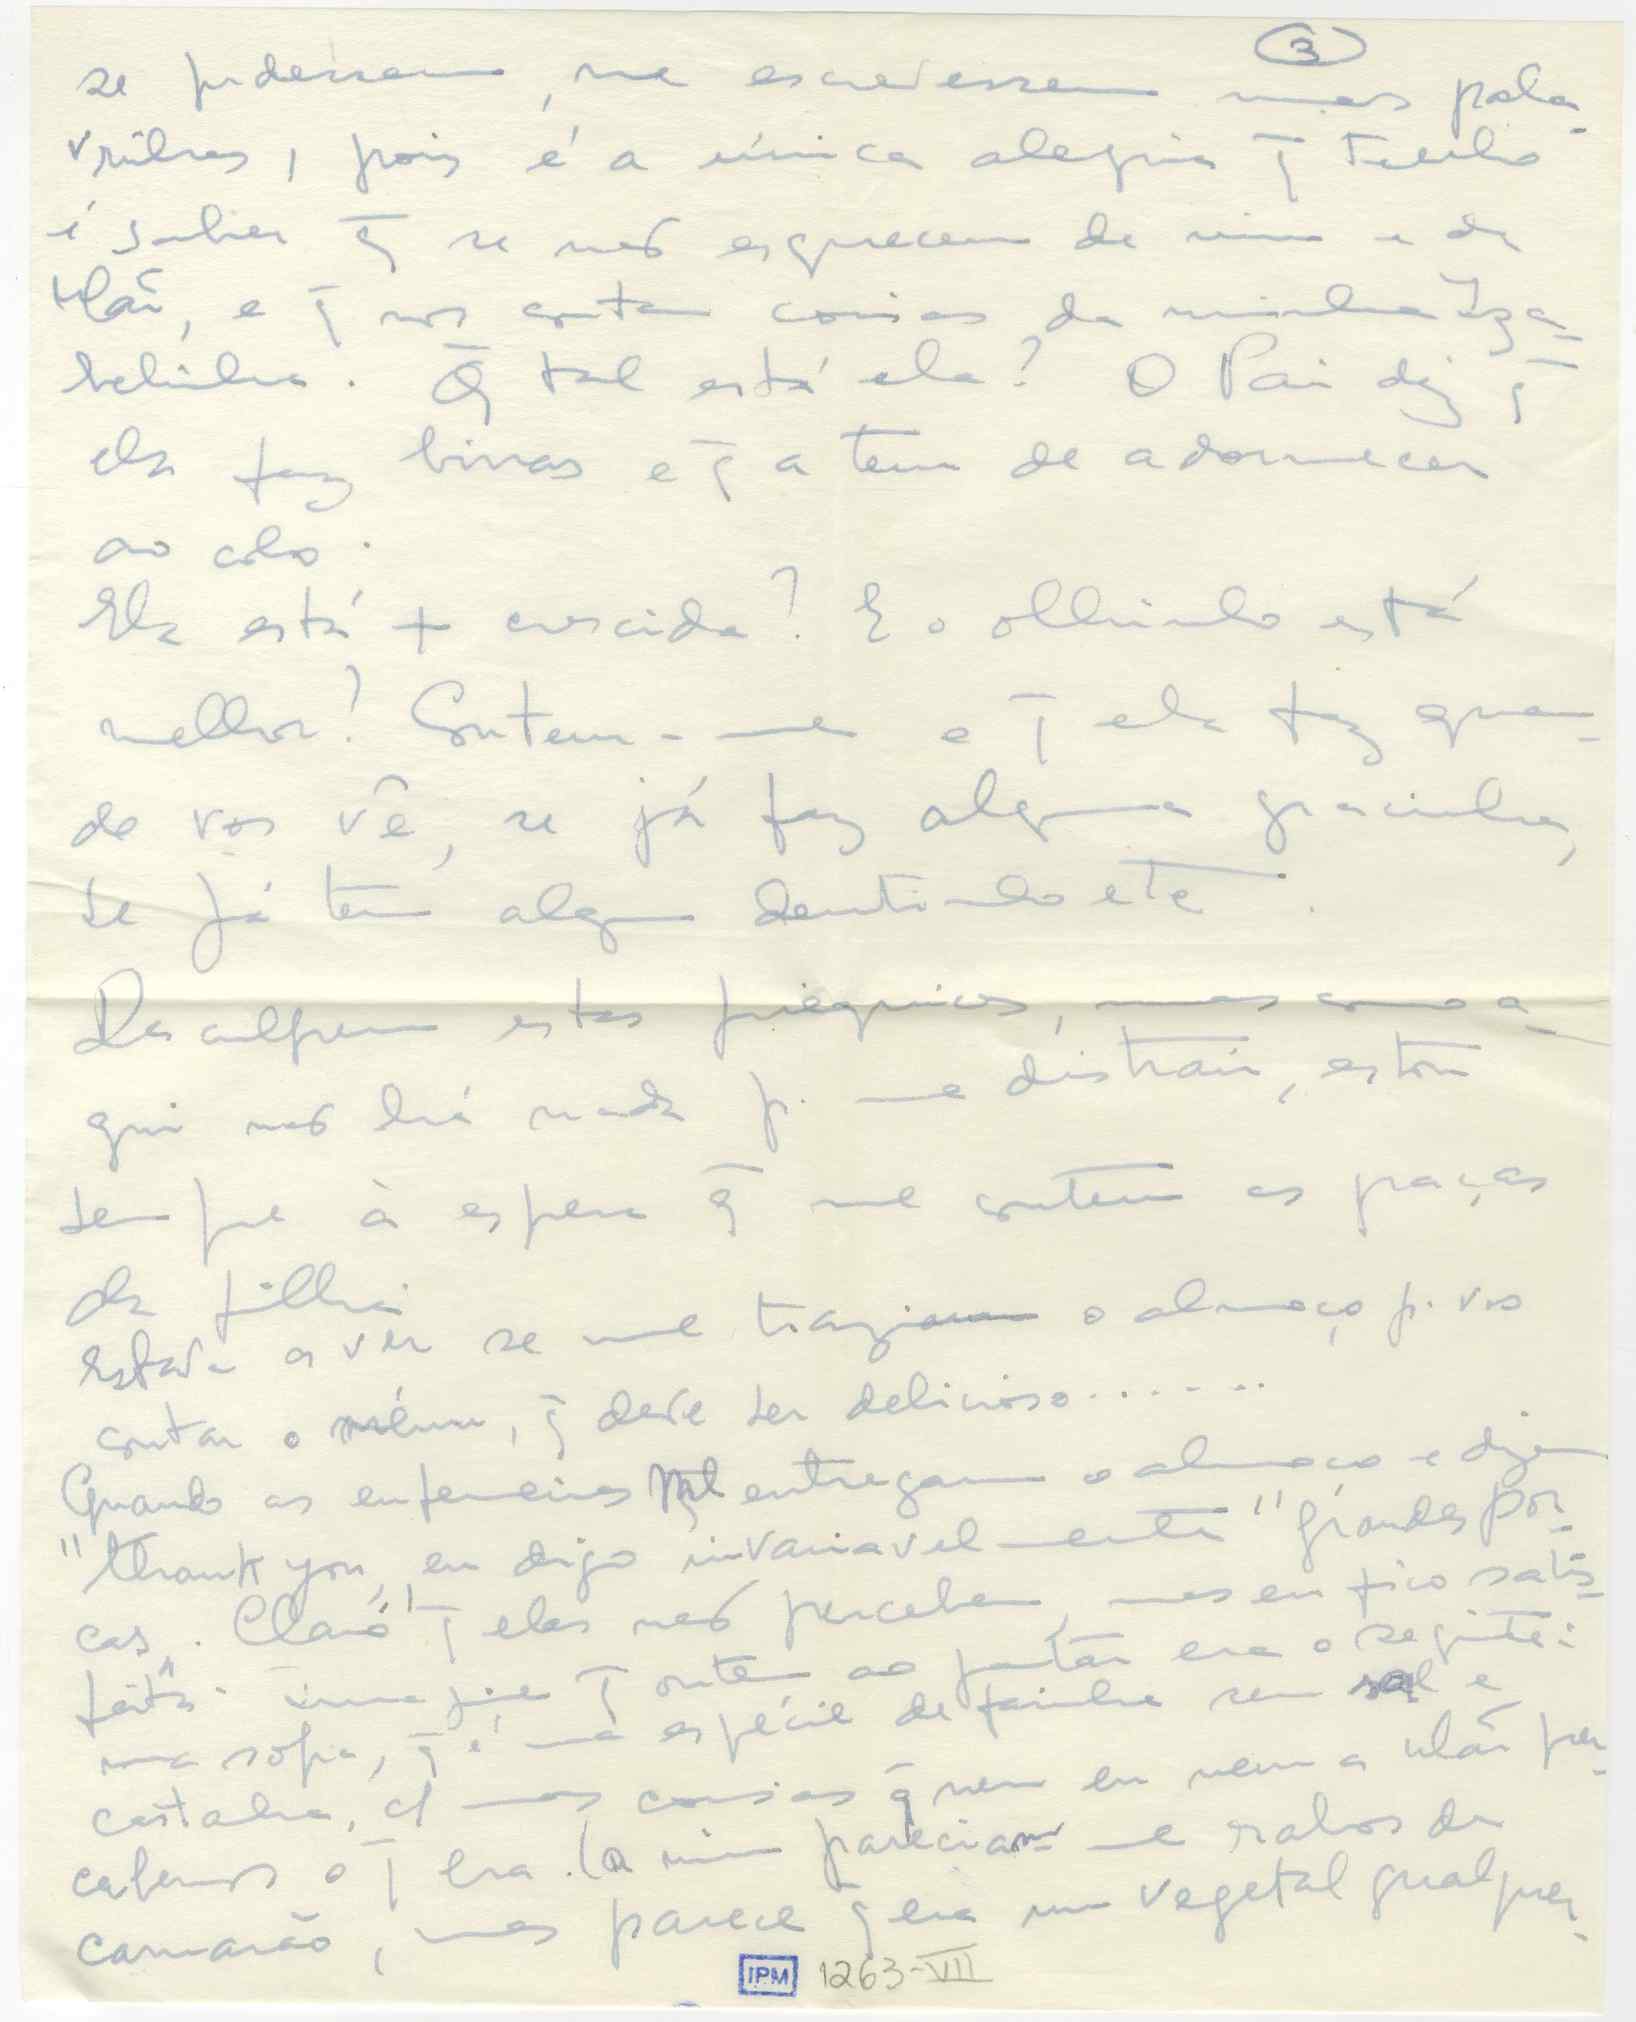 3
se pudessem, me escrevessem umas pala-
vrinhas, pois é a única alegria q̄ tenho
é saber q̄ se não esquecem de mim e da
Mãi, e q̄ nos contem coisas da minha Iza-
belinha. Q̄ tal está ela? O Pai diz q̄
ela faz birras e q̄ a tem de adormecer
ao colo.
Ela está + crescida? E o olhinho está
melhor? Contem-me o q̄ ela faz quan-
do vos vê, se já faz alguma gracinha,
se já tem algum dentinho etc.
Desculpem estas pieguices, mas como a-
qui não há nada p. me distrair, estou
sempre à espera q̄ me contem as graças
da filha.
Estava a ver se me traziam o almoço p. vos
contar o ménu, q̄ deve ser delicioso.......
Quando as enfermeiras me entregam o almoço e dizem
"thank you, eu digo invariavelmente "grandes por-
cas". Claro q̄ elas não percebem, mas eu fico satis-
feita. imagine q̄ ontem ao jantar era o seguinte:
uma sopa, q̄ é uma espécie de farinha sem sal e
castanha, c/ umas coisas q̄ nem eu nem a Mãi per-
cebemos o q̄ era. (a mim pareciam-me rabos de
camarão, mas parece q̄ era um vegetal qualquer.
IPM 1263-VII